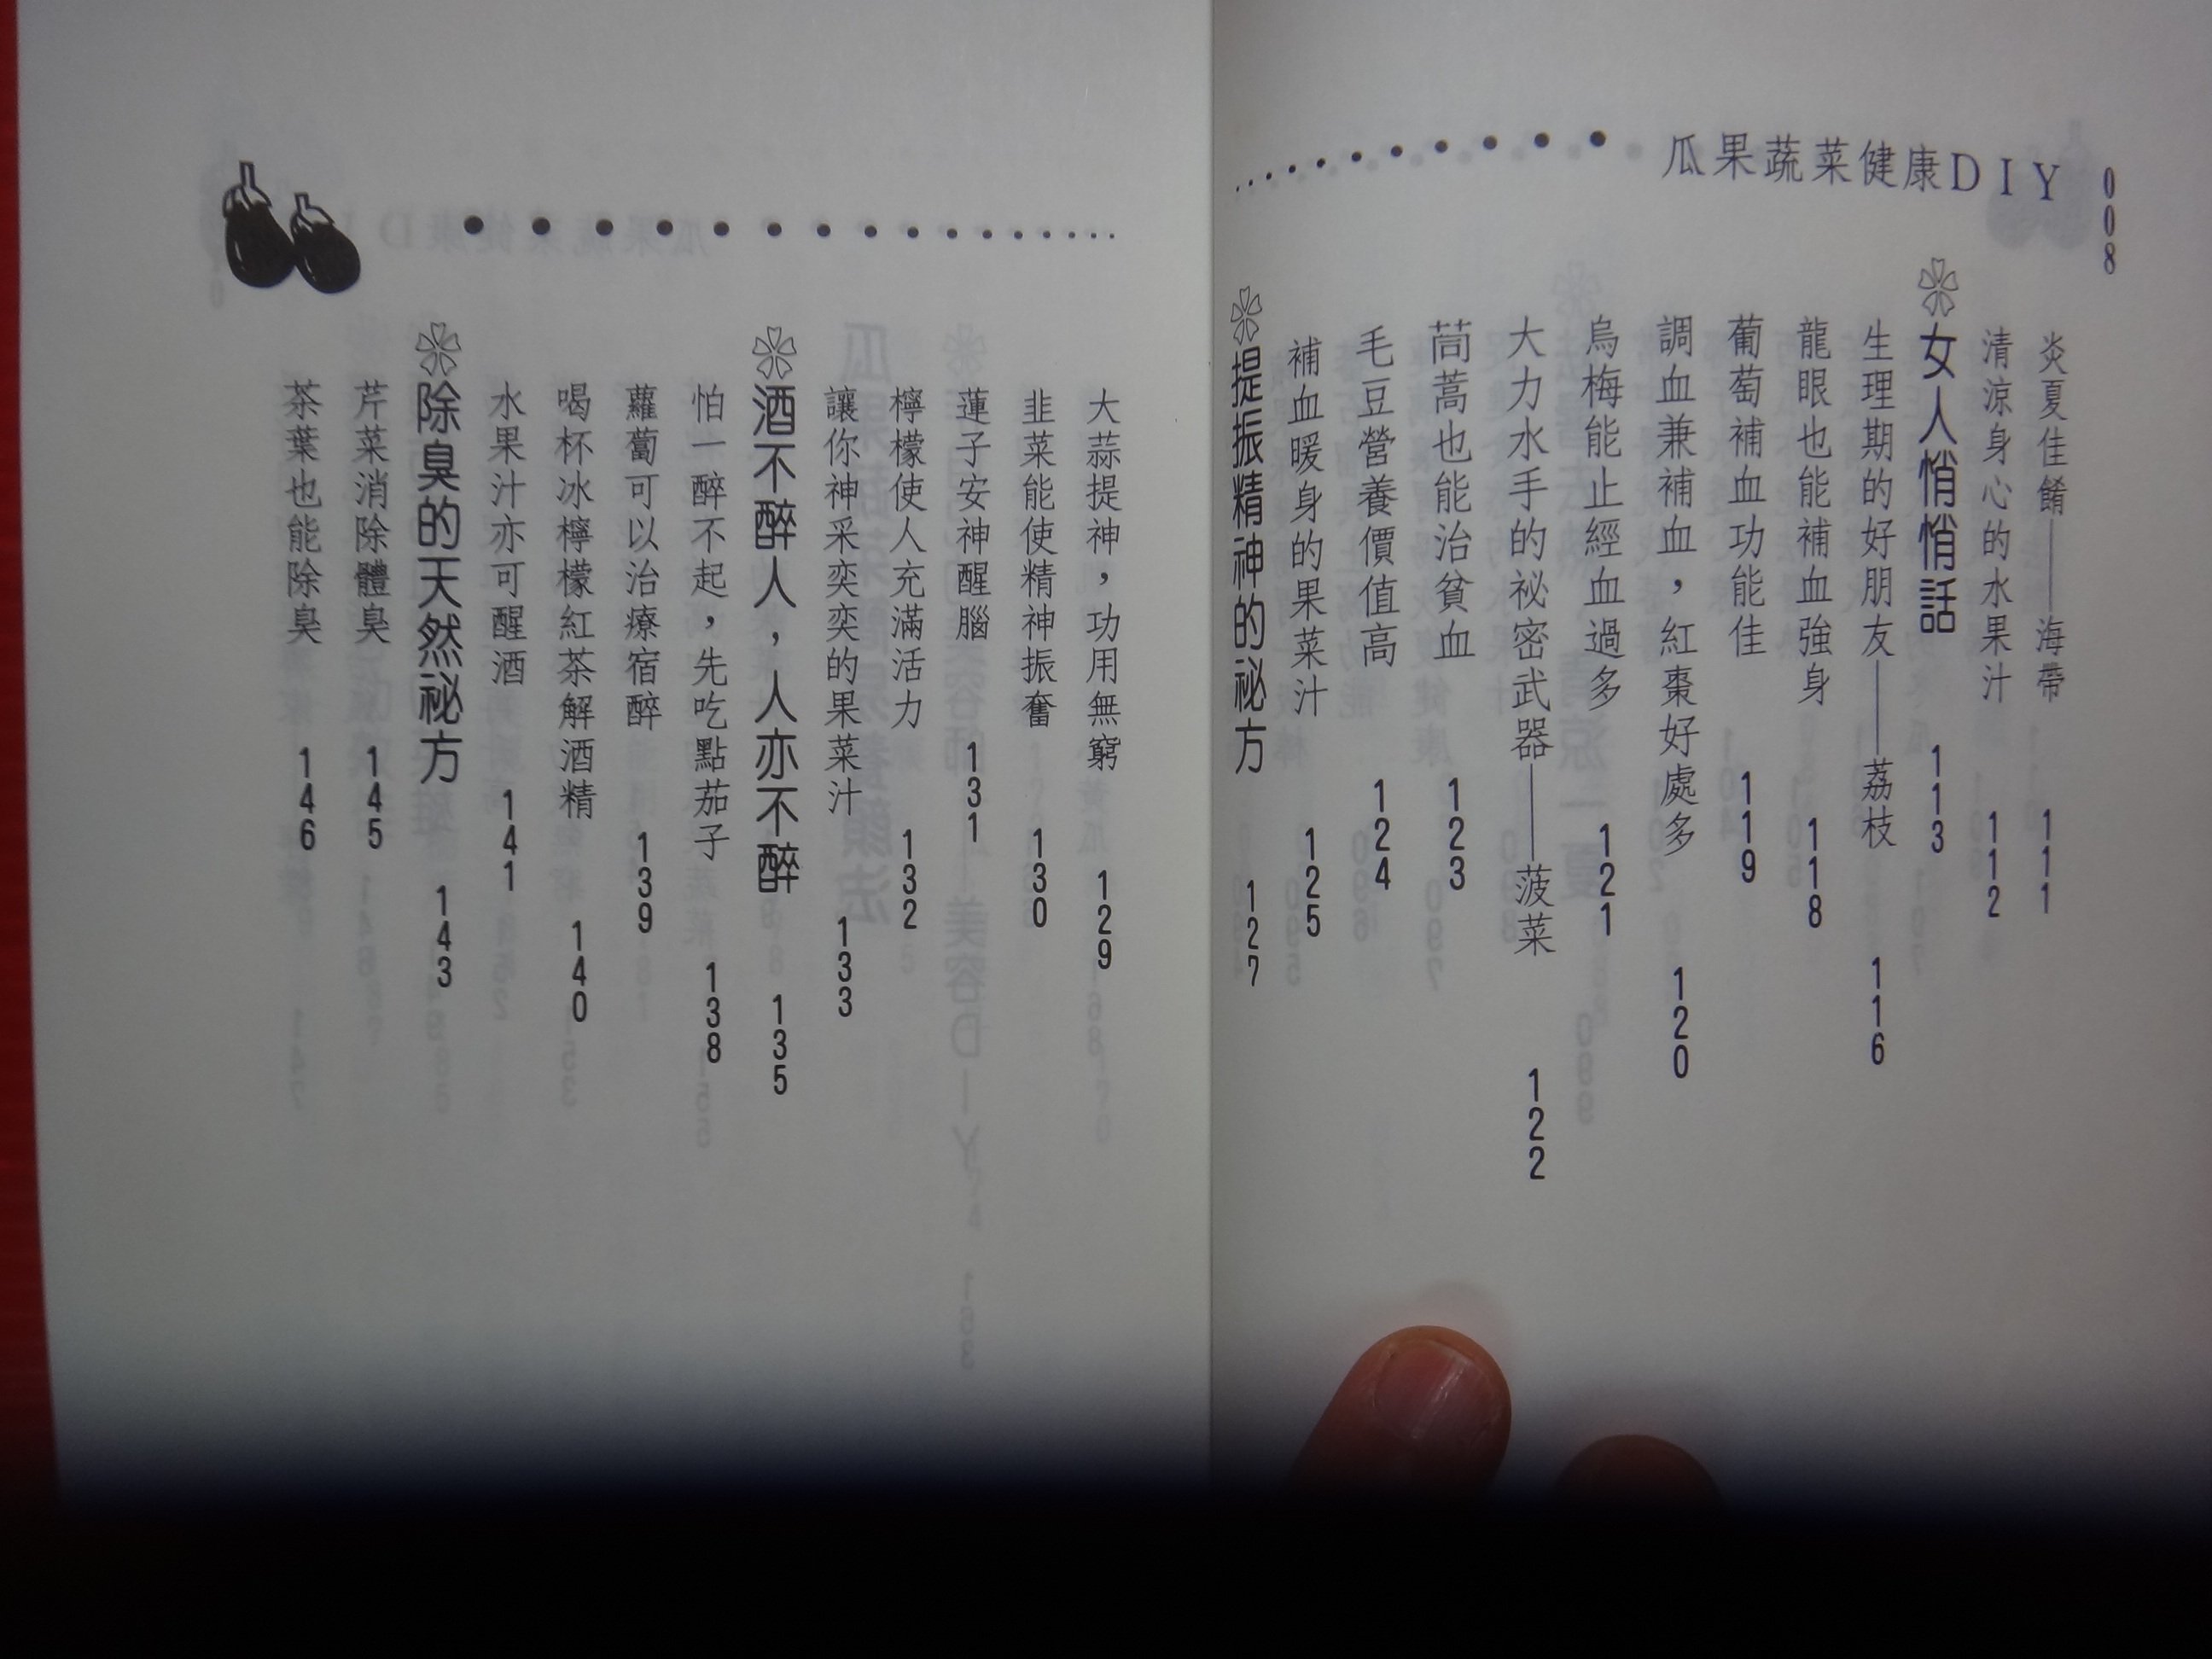 008
瓜果蔬菜健康DIY
炎夏佳餚——海帶 111
清涼身心的水果汁 112
女人悄悄話 113
生理期的好朋友——荔枝 116
龍眼也能補血強身 118
葡萄補血功能佳 119
調血兼補血，紅棗好處多 120
烏梅能止經血過多 121
大力水手的祕密武器——菠菜 122
茼蒿也能治貧血 123
毛豆營養價值高 124
補血暖身的果菜汁 125
提振精神的祕方 127
大蒜提神，功用無窮 129
韭菜能使精神振奮 130
蓮子安神醒腦 131
檸檬使人充滿活力 132
讓你神采奕奕的果菜汁 133
酒不醉人，人亦不醉 135
怕一醉不起，先吃點茄子 138
蘿蔔可以治療宿醉 139
喝杯冰檸檬紅茶解酒精 140
水果汁亦可醒酒 141
除臭的天然祕方 143
芹菜消除體臭 145
茶葉也能除臭 146